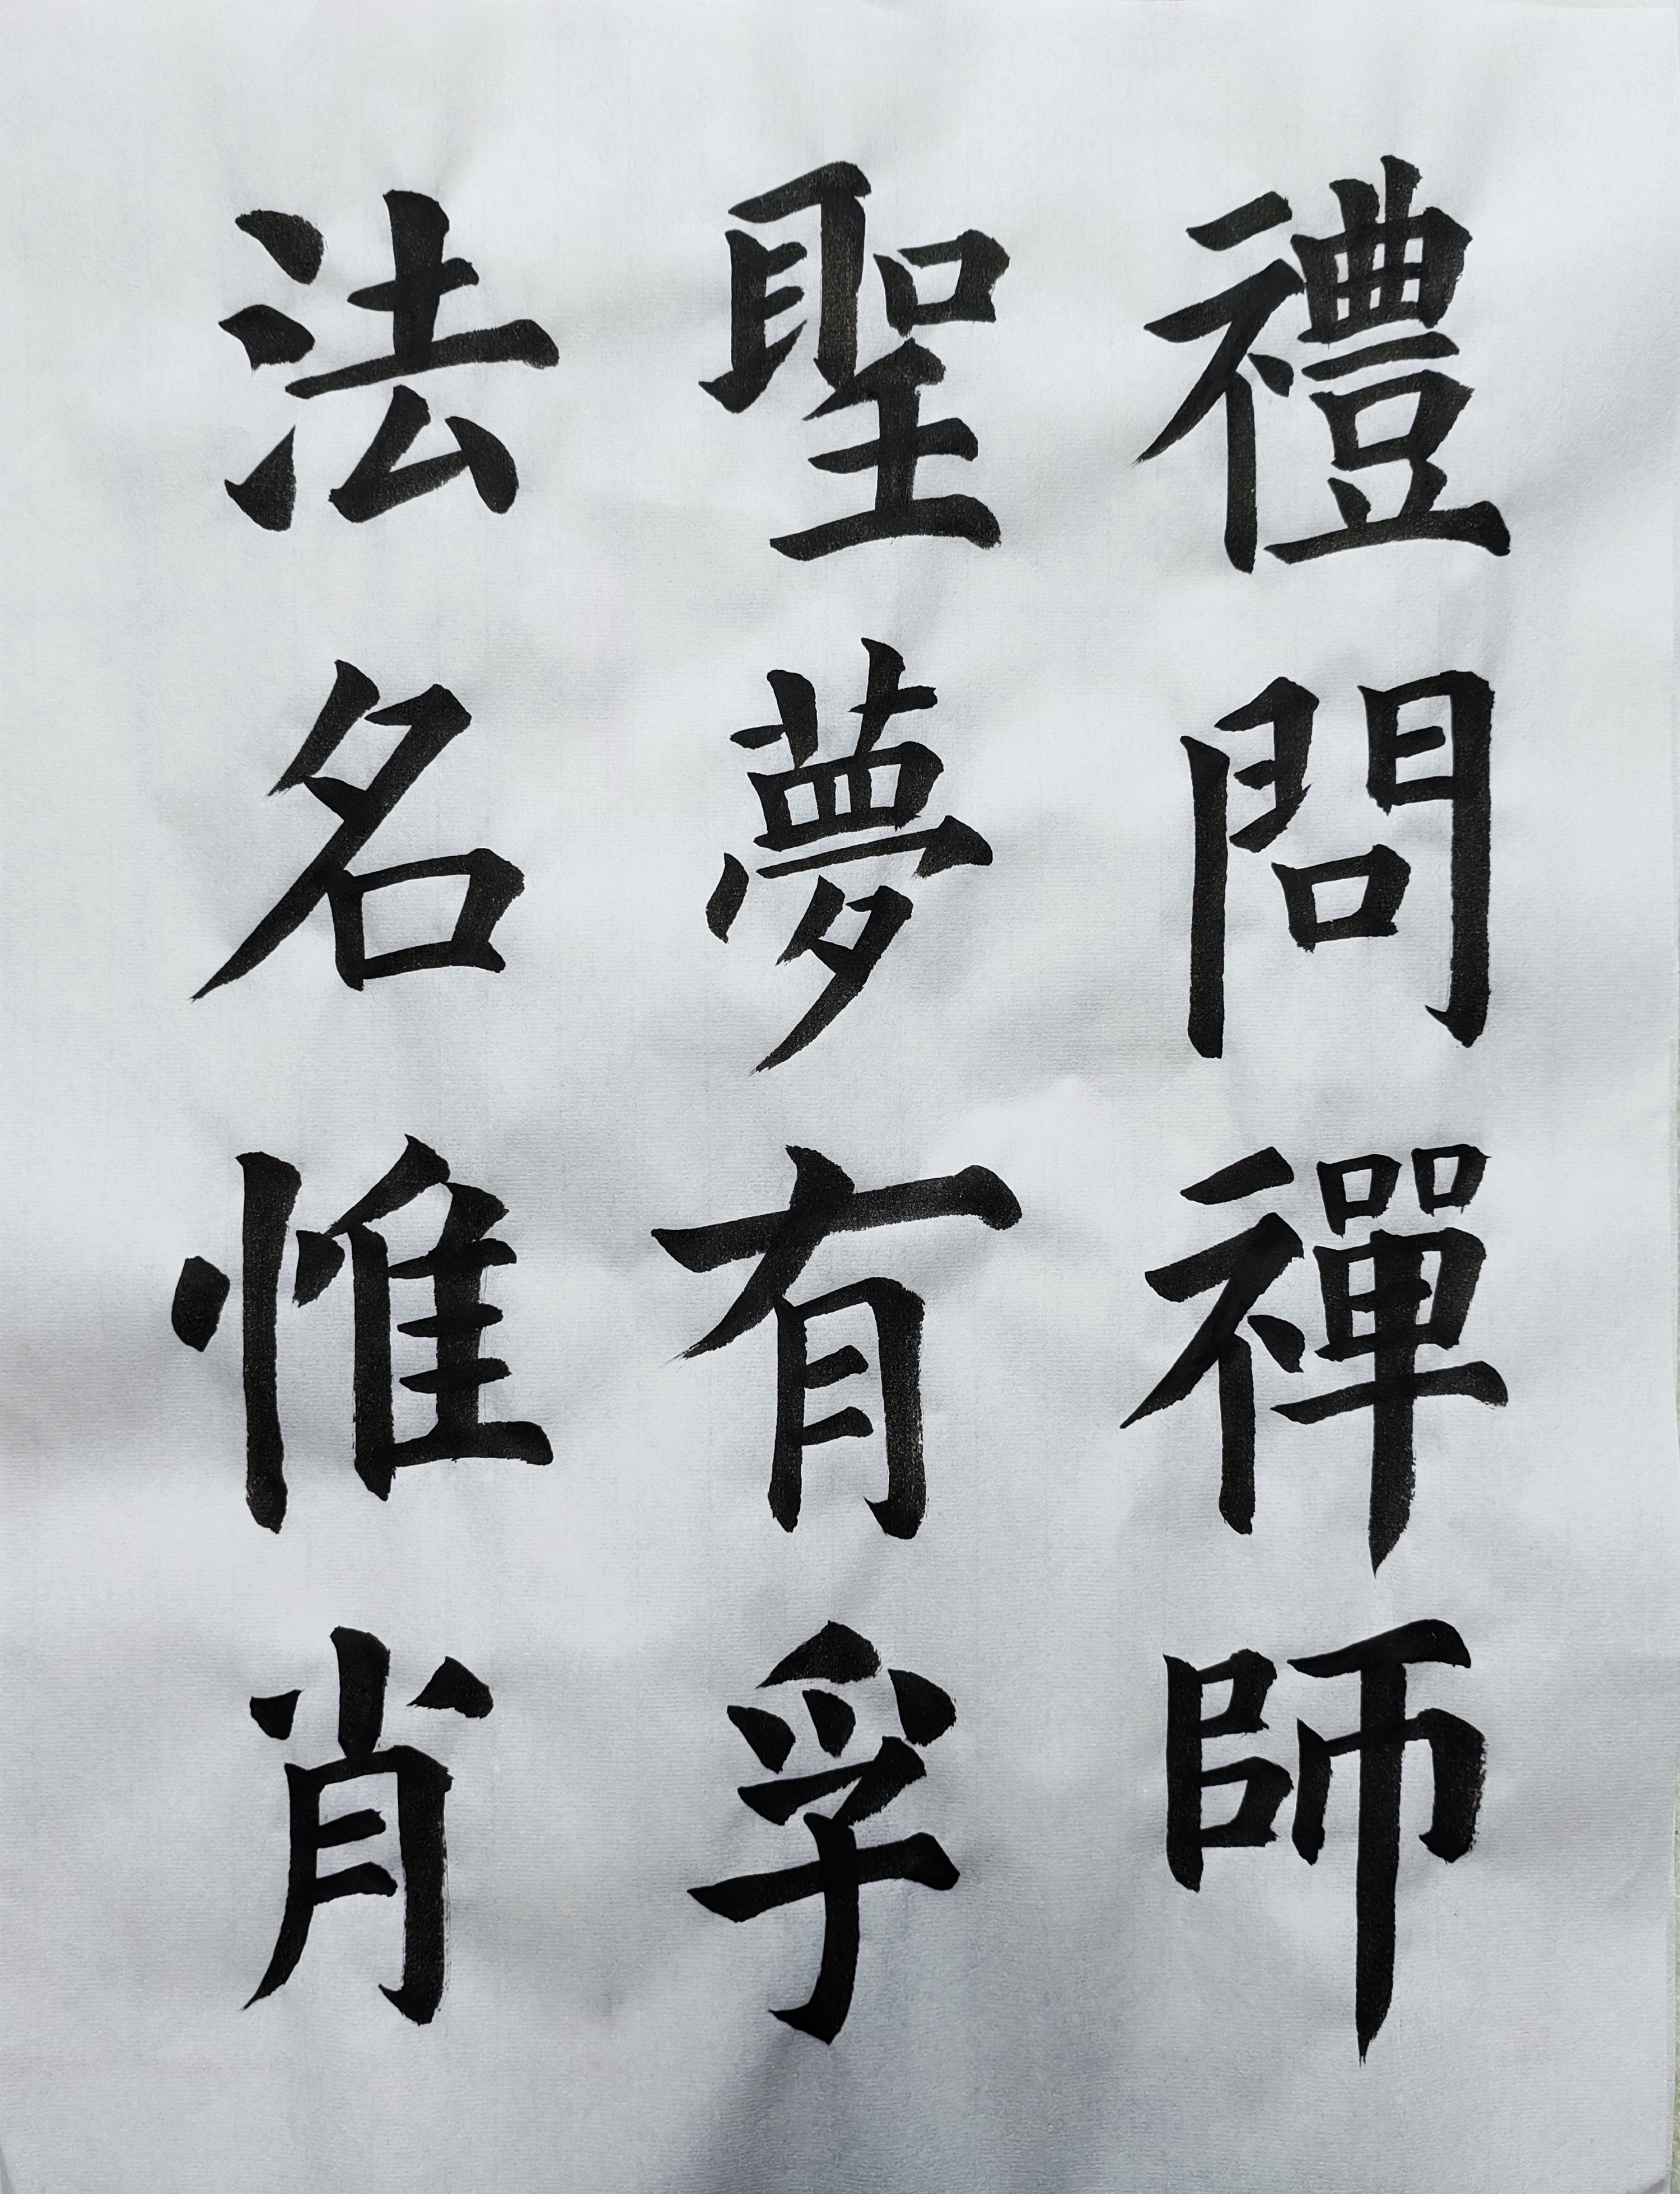 禮問禪師
聖夢有孚
法名惟肖